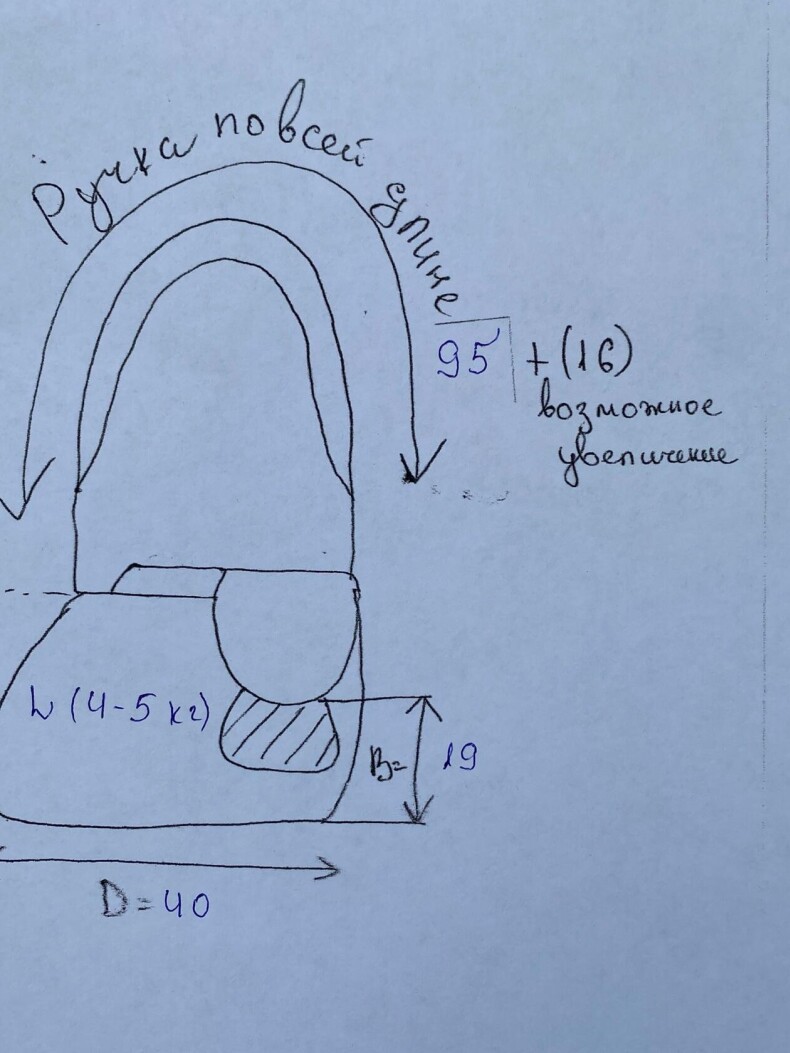 Ручка по всей длине
95 + (16)
возможное
увеличение
L (4-5 кг)
B= 19
D = 40